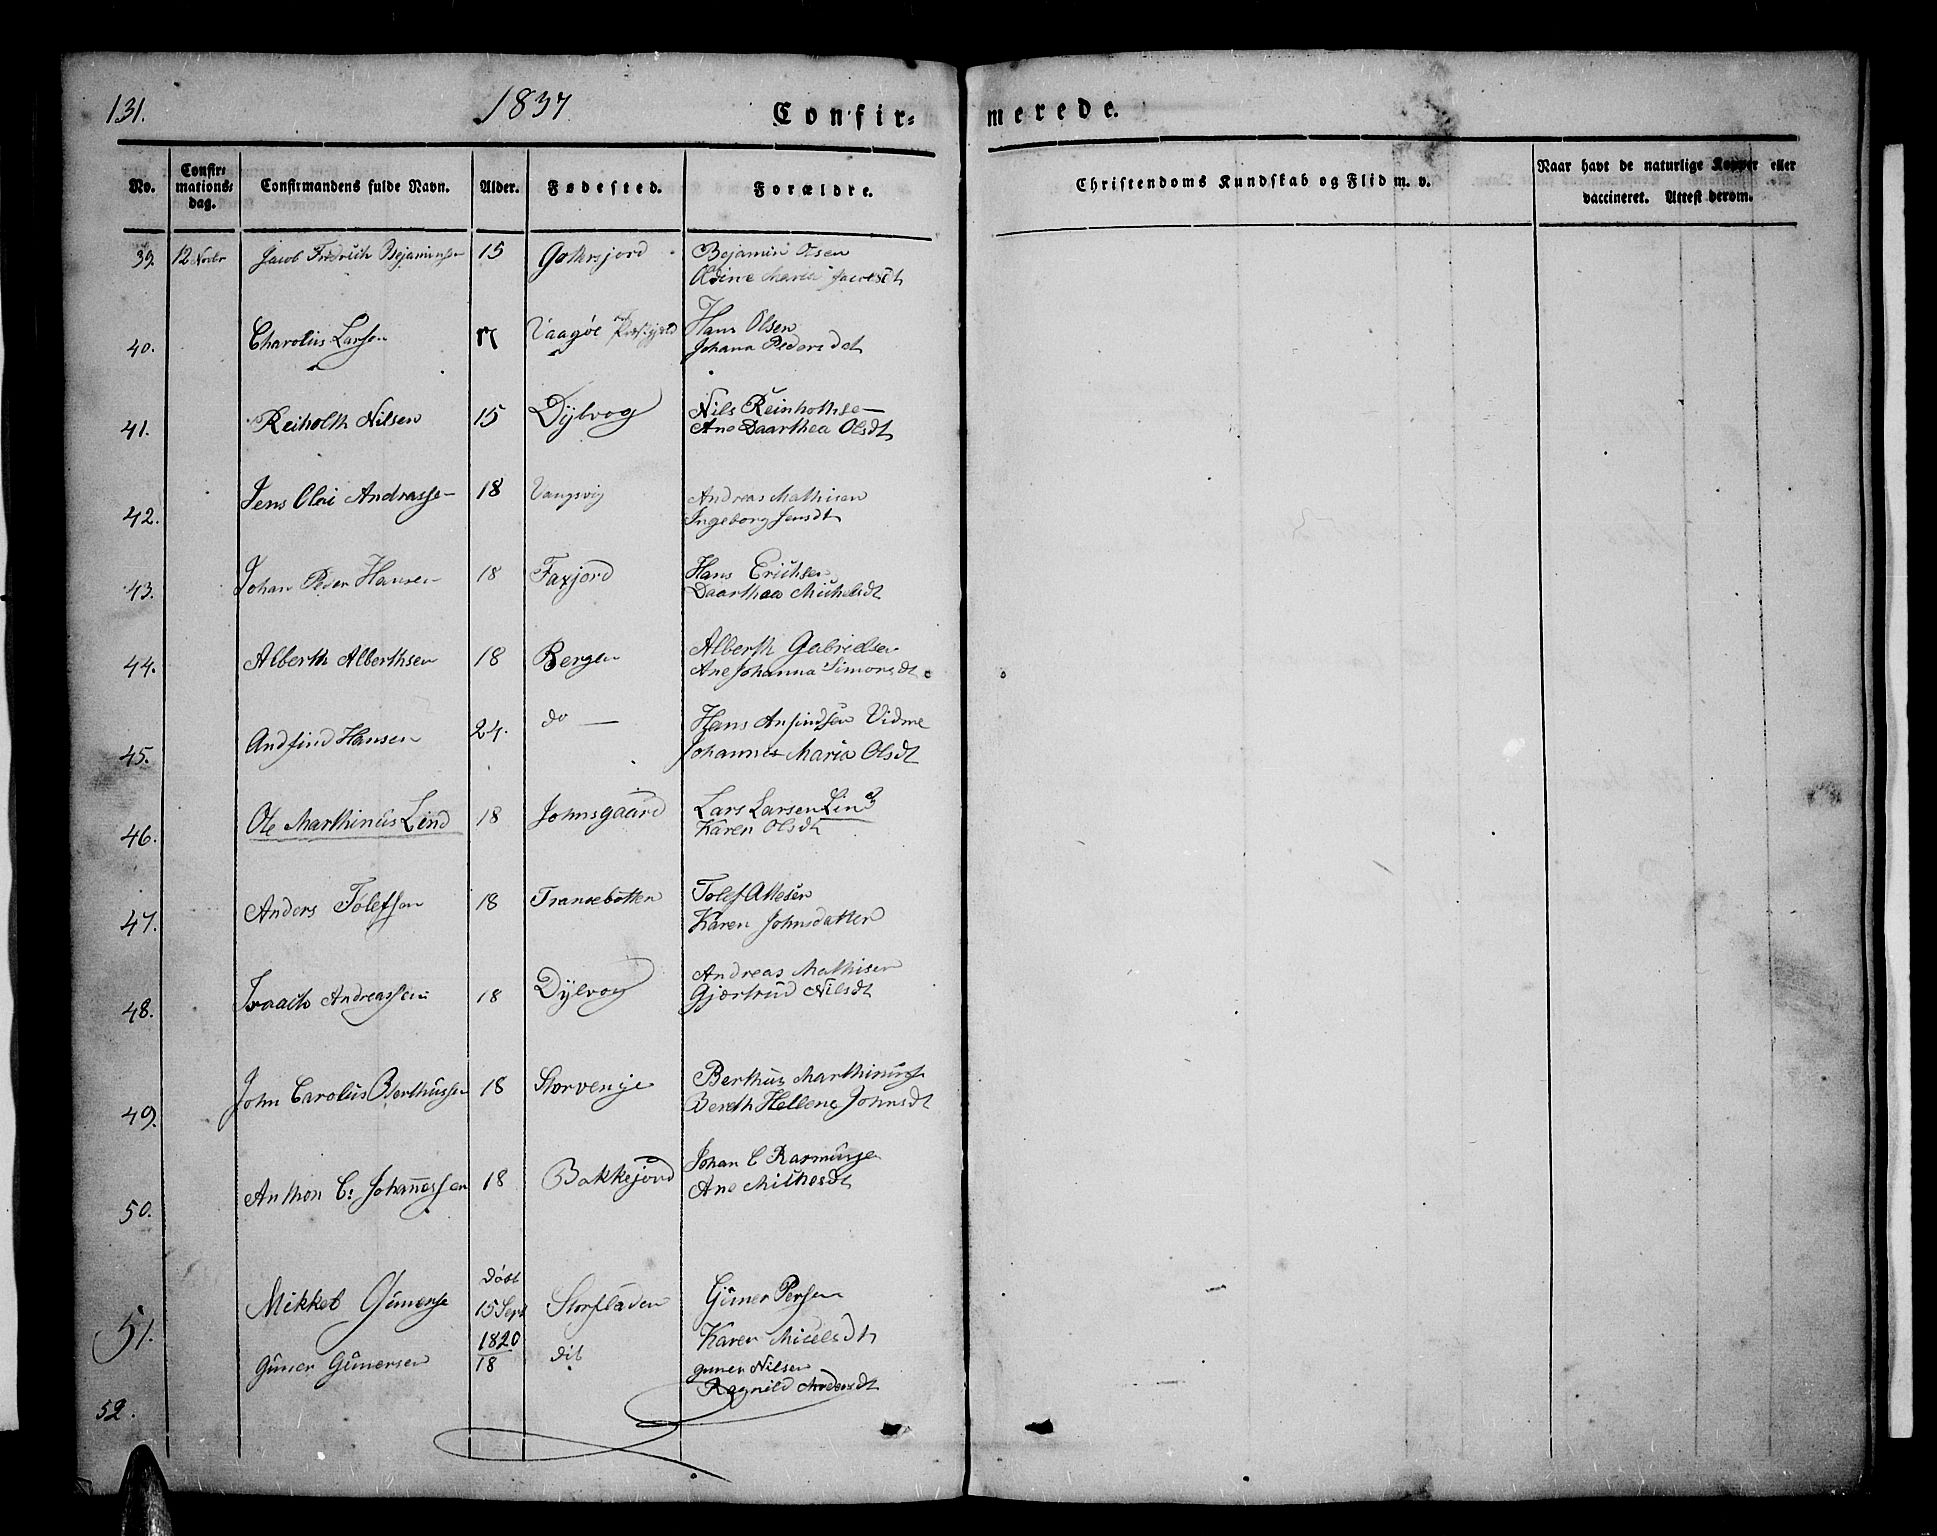 131.
1837
Confir=
merede.
No.
Confir=
mations=
dag.
Confirmandens fulde Navn.
Alder.
Fødested.
Forældre.
Christendoms Kundskab og Flid m. v.
Naar havt de naturlige Kopper eller
vaccineret. Attest derom.
39. 12 Novbr Jacob Fredrich Bejaminsen 15 Bejamin Olsen
Oline Maria
40. Charolus Larsen 17 Vaagøe Hans Olsen
Johana Pedersdt
41. Reiholth Nilsen 15 Dylvog Nils Reinholthse
Ane Daarthea Olsdt
42. Jens Olai Andrasse 18 Vangsvig Andreas Mathisen
Ingeborg Jensdt
43. Johan Peder Hansen 18 Faxjord Hans Erichsen
Daarthea Michelsdt
44. Alberth Alberthsen 18 Bergen Alberth Gabrielsen
Ane Johanna Simonsdt
45. Andfind Hansen 24. do — Hans Anfindsen Vidme
Johannes Maria Olsdt
46. Ole Marthinus Lind 18 Johnsgaard Lars Larsen Lind
Karen Olsdt
47. Anders Tolefsen 18 Tranebotten Tolef Attesen
Karen Johnsdatter
48. Isaach Andreassen 18 Dylvog Andreas Mathisen
Gjertrud Nilsdt
49. John Carolus Berthussen 18 Storvenge Berthus Marthinuss
Bereth Hellene Johnsdt
50. Anthon C: Johannessen 18 Bakkejord Johan C Rasmusse
Ane Michelsdt
51. Mikkel Gunerse Døbt
15 Sept
1820 Storsladen Guner Persen
Karen Micelsdt
52. Guner Gunersen 18 dit guner Nilsen
Ragnild Andersdt